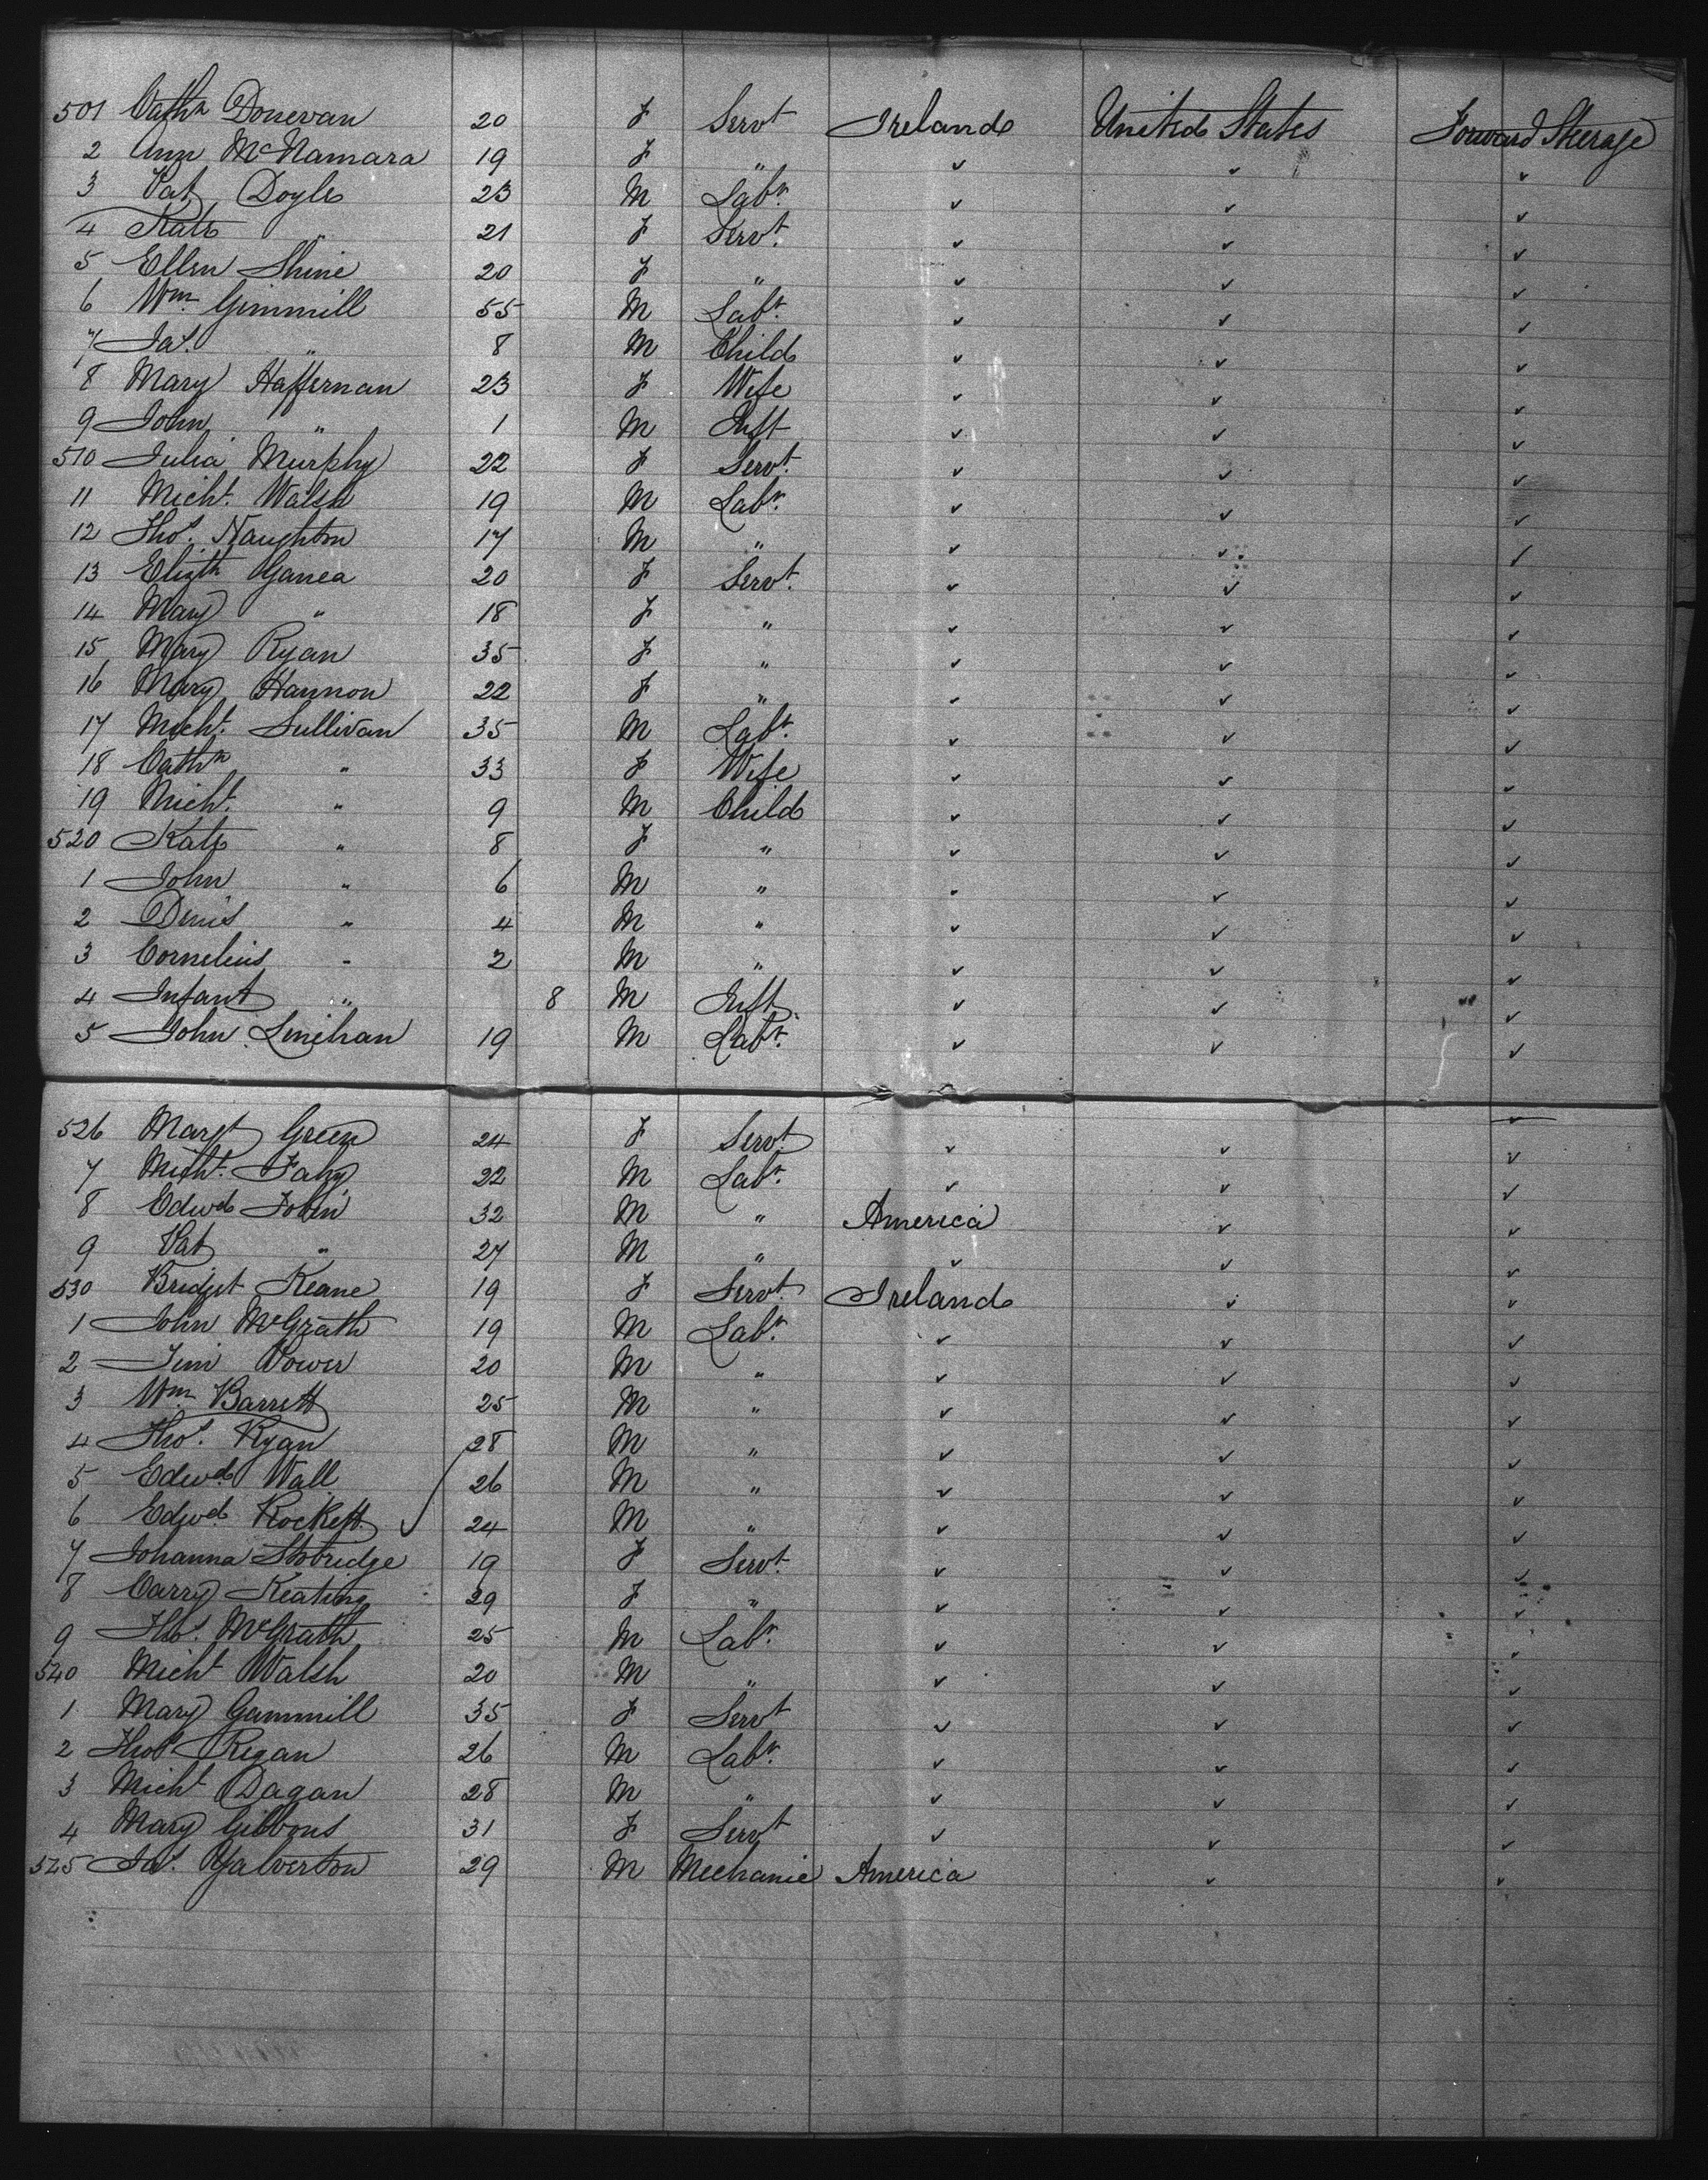 501 Cathn Donevan 20 F Servt Ireland United States Forward Steerage
2 Ann McNamara 19 F " ✓ ✓ ✓
3 Pat Doyle 23 M Labr. ✓ ✓ ✓
4 Kate " 21 F Servt. ✓ ✓ ✓
5 Ellen Shine 20 F " ✓ ✓ ✓
6 Wm. Gimmill 55 M Labr. ✓ ✓ ✓
7 Jas. " 8 M Child ✓ ✓ ✓
8 Mary Haffernan 23 F Wife ✓ ✓ ✓
9 John " 1 M Inft ✓ ✓ ✓
510 Julia Murphy 22 F Servt. ✓ ✓ ✓
11 Michl. Walsh 19 M Labr. ✓ ✓ ✓
12 Thos. Naughton 17 M " ✓ ✓ ✓
13 Elizth Ganea 20 F Servt. ✓ ✓ ✓
14 Mary " 18 F " ✓ ✓ ✓
15 Mary Ryan 35 F " ✓ ✓ ✓
16 Mary Hannon 22 F " ✓ ✓ ✓
17 Michl. Sullivan 35 M Labr. ✓ ✓ ✓
18 Cathn " 33 F Wife ✓ ✓ ✓
19 Michl. " 9 M Child ✓ ✓ ✓
520 Kate " 8 F " ✓ ✓ ✓
1 John " 6 M " ✓ ✓ ✓
2 Denis " 4 M " ✓ ✓ ✓
3 Cornelius " 2 M " ✓ ✓ ✓
4 Infant " 8 M Inft ✓ ✓ ✓
5 John Linehan 19 M Labr. ✓ ✓ ✓
526 Margt Green 24 F Servt ✓ ✓ ✓
7 Michl. Fahy 22 M Labr. ✓ ✓ ✓
8 Edwd Tobin 32 M " America ✓ ✓
9 Pat " 27 M " ✓ ✓ ✓
530 Bridget Keane 19 F Servt. Ireland ✓ ✓
1 John McGrath 19 M Labr. ✓ ✓ ✓
2 Jim Power 20 M " ✓ ✓ ✓
3 Wm. Barrett 25 M " ✓ ✓ ✓
4 Thos. Ryan 28 M " ✓ ✓ ✓
5 Edwd. Wall 26 M " ✓ ✓ ✓
6 Edwd. Rockett 24 M " ✓ ✓ ✓
7 Johanna Stobridge 19 F Servt. ✓ ✓ ✓
8 Carry Keating 29 F " ✓ ✓ ✓
9 Thos. McGrath 25 M Labr. ✓ ✓ ✓
540 Michl Walsh 20 M " ✓ ✓ ✓
1 Mary Gammill 35 F Servt ✓ ✓ ✓
2 Thos Regan 26 M Labr. ✓ ✓ ✓
3 Michl Dagan 28 M " ✓ ✓ ✓
4 Mary Gibbons 31 F Servt ✓ ✓ ✓
545 Jas. Yalverton 29 M Mechanic America ✓ ✓